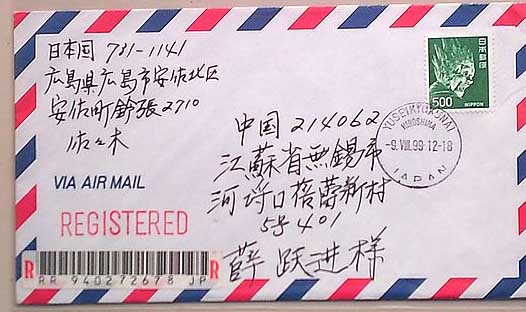 日本国 731-1141
広島県広島市安佐北区
安佐町鈴張2710
佐々木
VIA AIR MAIL
REGISTERED
R
RR 940272678 JP
R
日本郵便
500
NIPPON
YUSEIKYOKUNAI
HIROSHIMA
-9.VIII.99.12-18
JAPAN
中国214062
江蘇省無錫市
河埒口蓓蕾新村
58 401
薛跃进様